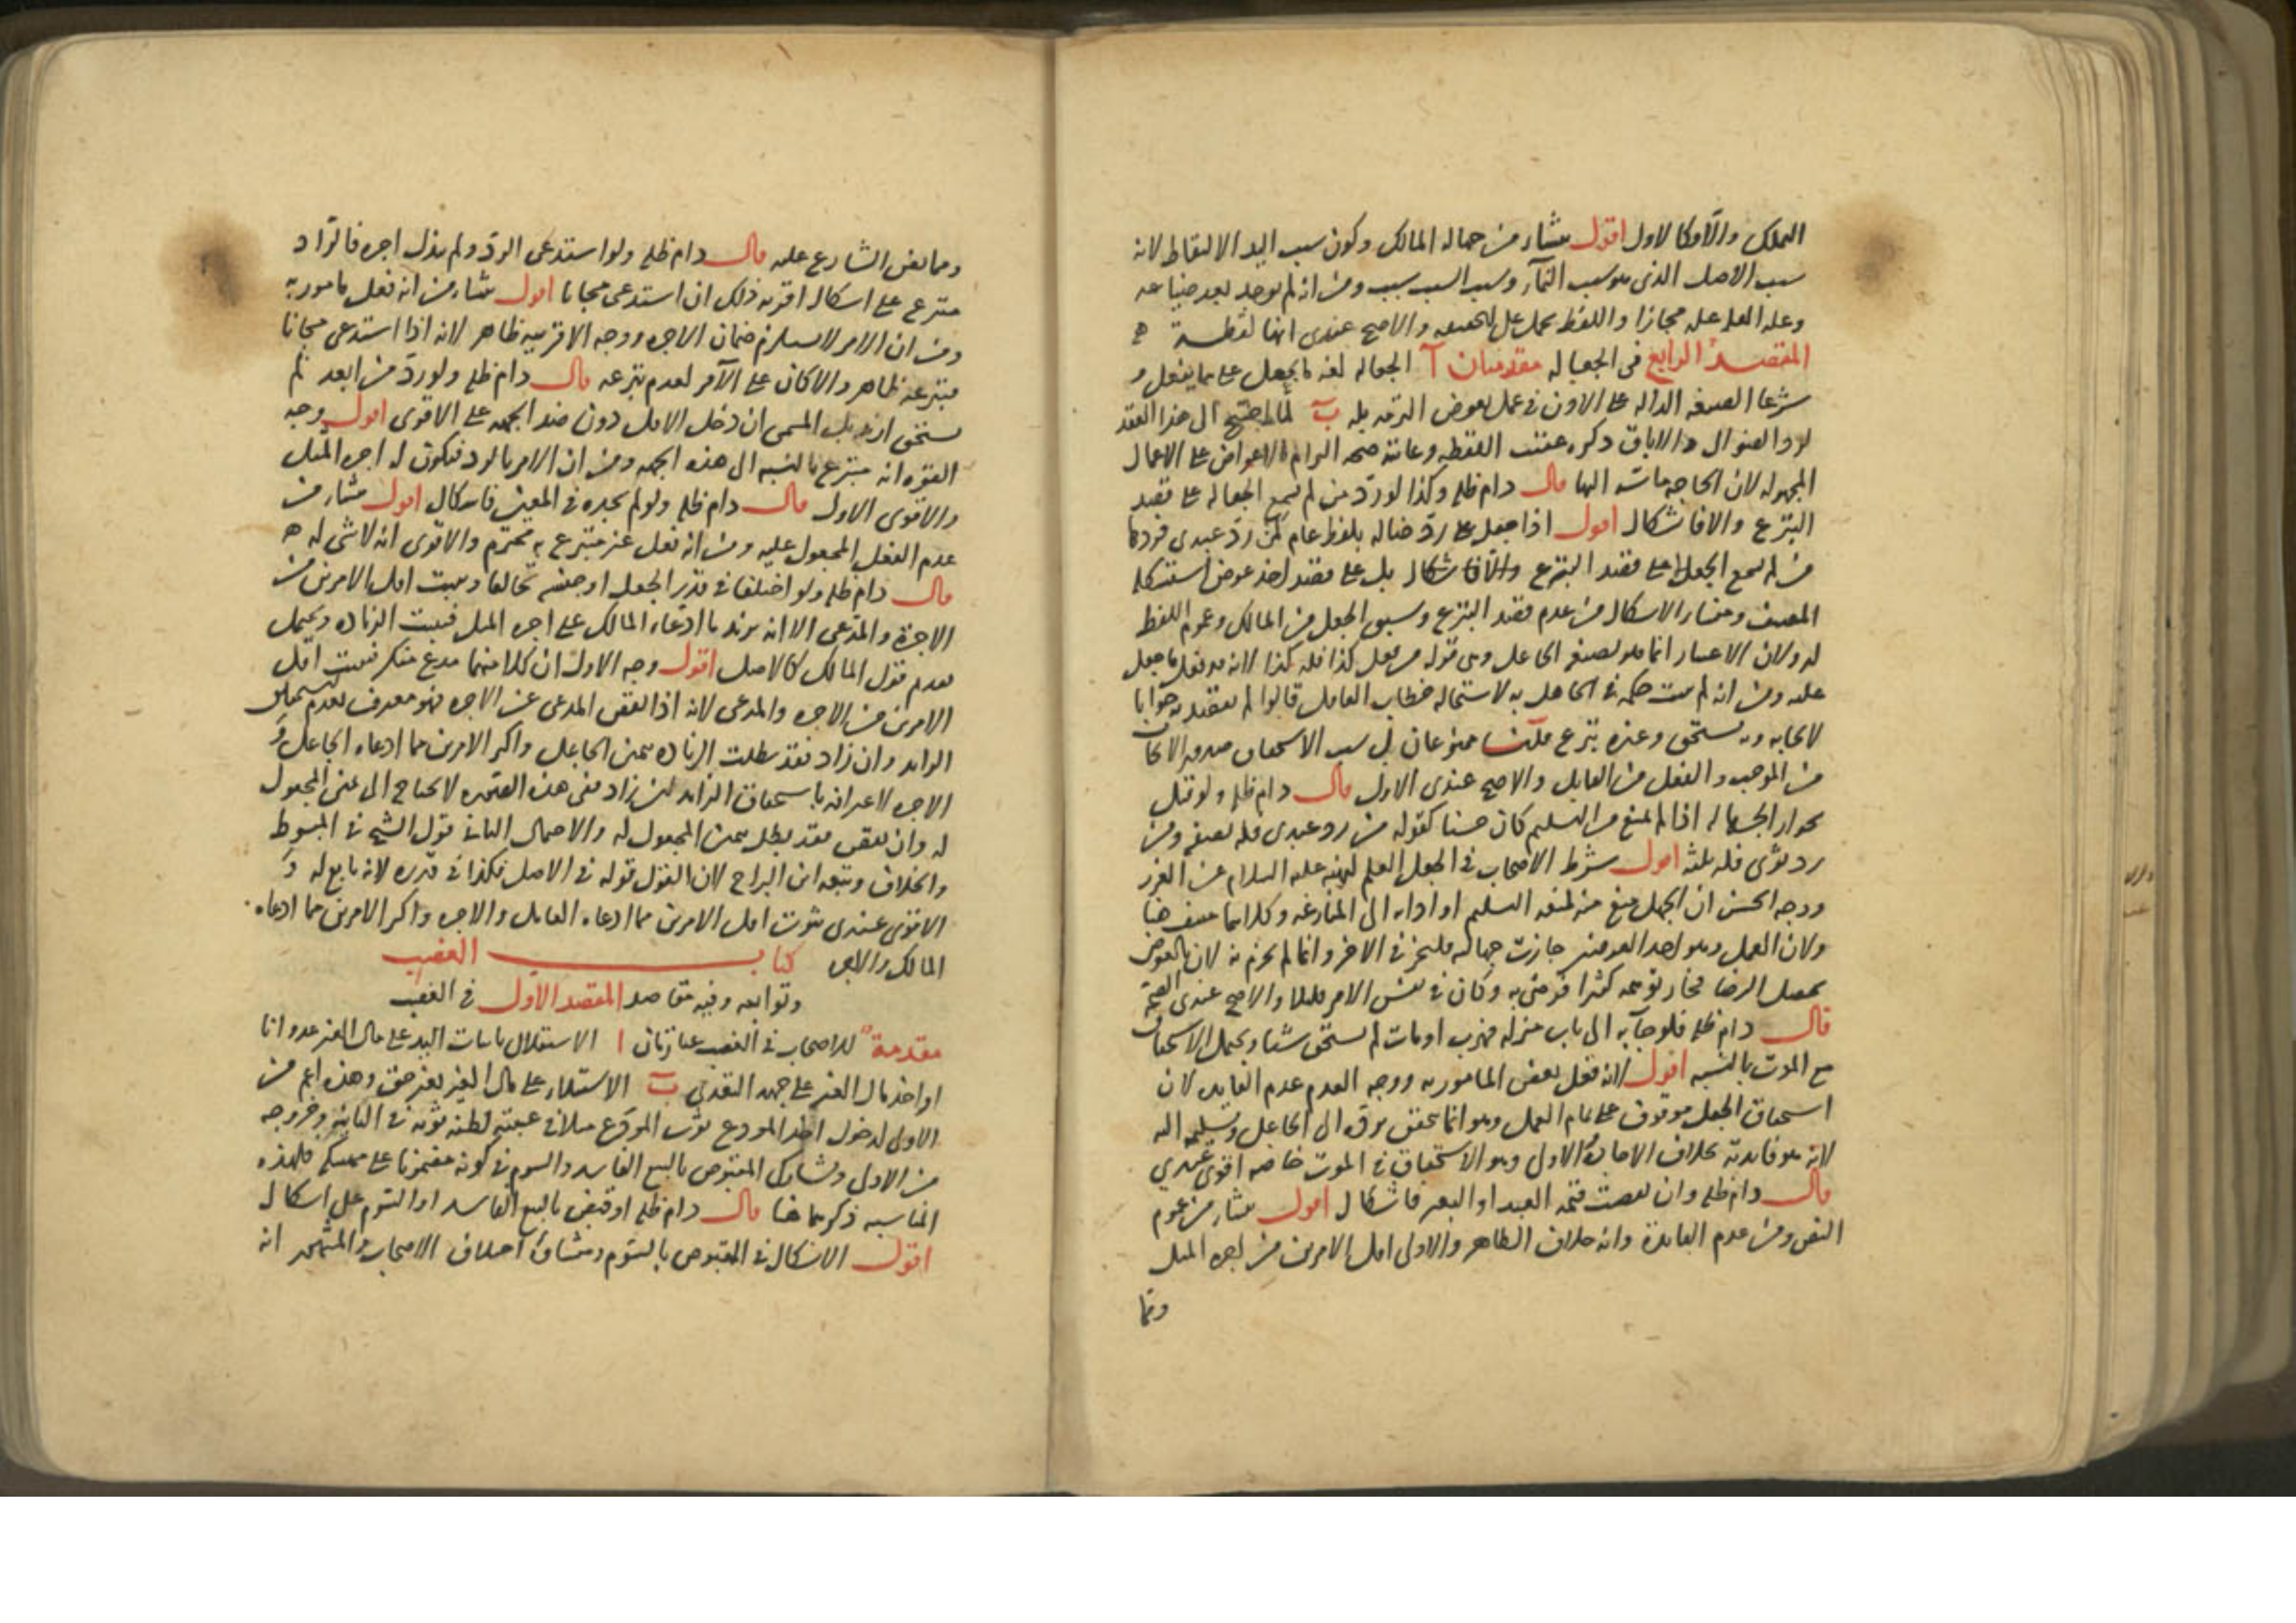 التملك والا فكالاول اقول منشاؤه من جهاله المالك وكون سبب اليد الالتقاط لانه
سبب الاصل الذى هو سبب النماء وسبب السبب سبب ومن انه لم يوجد بعد ضياعه
مجازا واللفظ يحمل على الحقيقه والاصح عندى انها لقطة
المقصد الرابع فى الجعاله مقدمتان آ الجعاله لغه ما يجعل على ما يفعل و
شرعا الصيغه الداله على الاذن فى عمل بعوض التزمه به ب لما احتيج الى هذا العقد
لرد الضوال والاباق ذكره عقيب اللقطه وغايته صحه الاعواض على الاعمال
المجهوله لان الحاجه ماسه اليها قال دام ظله وكذا لو رد من لم يسمع الجعاله على قصد
التبرع والا فاشكال اقول اذا جعل على رد ضاله بلفظ عام كمن رد عبدى فرده
من لم يسمع الجعل لا على قصد التبرع بل على قصد اخذ عوض استشكله
المصنف ومنشاء الاشكال من عدم قصد التبرع وسبق الجعل من المالك وعموم اللفظ
له ولان الاعتبار انما هو بصيغه الجاعل وهى قوله من فعل كذا فله كذا لانه قد فعل ما جعل
عليه ومن انه لم يثبت حكمه فى الجاهل به لاستحاله خطاب الغافل قالوا لم يقصد به جوابا
لايجابه وبه يستحق وغيره تبرع قلنا ممنوعان بل سبب الاستحقاق صدور الايجاب
من الموجب والفعل من القابل والاصح عندى الاول قال دام ظله ولو قيل
بجواز الجهاله اذا لم يمنع من التسليم كان حسنا كقوله من رد عبدى فله نصفه ومن
رد ثوبى فله ثلثه اقول شرط الاصحاب فى الجعل العلم لنهيه عليه السلام عن الغرر
ووجه الحسن ان الجهل منع منه لمنعه التسليم او اداؤه الى المنازعه وكلاهما منتف هنا
ولان العمل وهو احد العوضين جازت جهالته فليجز فى الاخر وانما لم يجز لان بالعوض
يحصل الرضا فجاز توهمه كثيرا فرضى به وكان فى نفس الامر قليلا والاصح عندى الصحة
قال دام ظله فلو جآء به الى باب منزله فهرب او مات لم يستحق شيئا ويحتمل الاستحقاق
مع الموت بالنسبه اقول لانه فعل بعض المامور به ووجه العدم عدم الفايده لان
استحقاق الجعل موقوف على تمام العمل وهو انما يتحقق برده الى الجاعل وتسليمه اليه
لانه هو فايدته بخلاف الاجاره والاول وهو الاستحقاق فى الموت خاصه اقوى عندي
قال دام ظله وان نقصت قيمه العبد او البعير فاشكال اقول منشاؤه من عموم
النص ومن عدم الفايدة وانه خلاف الظاهر والاولى اقل الامرين من اجره المثل
ومما
ومما نص الشارع عليه قال دام ظله ولو استدعى الرد ولم يبذل اجره فالراد
متبرع على اشكال اقربه ذلك ان استدعى مجانا اقول منشاؤه من انه فعل مامور به
ومن ان الامر لا يستلزم ضمان الاجره ووجه الاقربيه ظاهر لانه اذا استدعى مجانا
فتبرعه ظاهر والا كان على الآمر لعدم تبرعه قال دام ظله ولو رد من ابعد لم
يستحق ازيد من المسمى ان دخل الاقل دون ضد الجهه على الاقوى اقول وجه
القوه انه متبرع بالنسبه الى هذه الجهه ومن ان الامر بالرد فيكون له اجره المثل
والاقوى الاول قال دام ظله ولو لم يجده فى المعين فاشكال اقول منشاؤه من
عدم الفعل المجعول عليه ومن انه فعل غير متبرع به محترم والاقوى انه لا شى له
قال دام ظله ولو اختلفا فى قدر الجعل او جنسه تحالفا ويثبت اقل الامرين من
الاجرة والمدعى الا ان يزيد ما ادعاه المالك على اجره المثل فيثبت الزياده ويحتمل
تقديم قول المالك كالاصل اقول وجه الاول ان كلا منهما مدع منكر فيثبت اقل
الامرين من الاجره والمدعى لانه اذا نقص المدعى عن الاجره فهو معترف بعدم استحقاق
الزايد وان زاد فقد بطلت الزياده بيمين الجاعل واكثر الامرين مما ادعاه الجاعل و
الاجره لاعترافه باستحقاق الزايد لمن زاد ففى هذه الصوره لا يحتاج الى يمين المجعول
له وان نقص فقد بطل بيمين المجعول له والاحتمال الثانى قول الشيخ فى المبسوط
والخلاف وتبعه ابن البراج لان القول قوله فى الاصل فكذا فى قدره لانه تابع له و
الاقوى عندى ثبوت اقل الامرين مما ادعاه العامل والاجره واكثر الامرين مما ادعاه
المالك والاجره كتاب الغصب
وتوابعه وفيه مقاصد المقصد الاول فى الغصب
مقدمة للاصحاب فى الغصب عبارتان ا الاستقلال باثبات اليد على مال الغير عدوانا
او اخذ مال الغير على جهه التعدى ب الاستيلاء على مال الغير بغير حق وهذه اعم من
الاولى لدخول اخذ المودع ثوب المودع مثلا فى غيبته لظنه ثوبه فى الثانية وخروجه
من الاول وتشارك المقبوض بالبيع الفاسد والسوم فى كونه مضمونا على ممسكه فلهذه
المناسبه ذكرهما هنا قال دام ظله او قبض بالبيع الفاسد او السوم على اشكال
اقول الاشكال فى المقبوض بالسوم ومنشاؤه اختلاف الاصحاب والمشهور انه